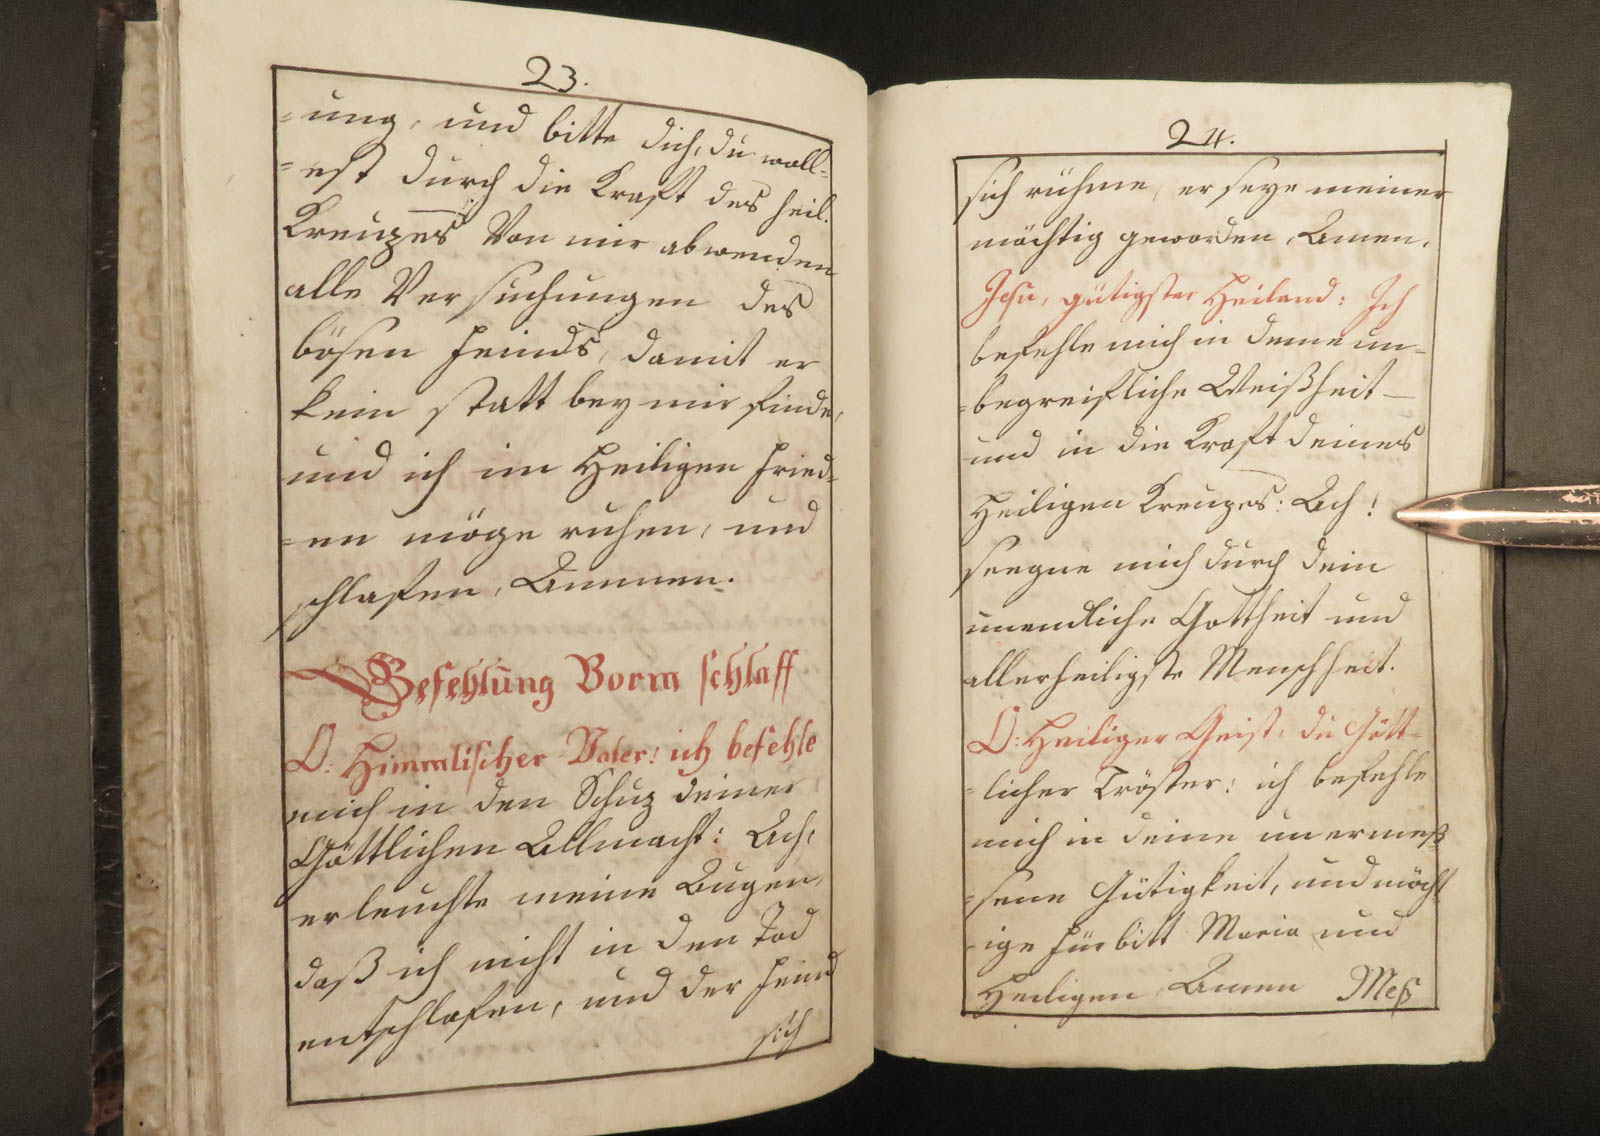 23.
=ung, und bitte dich, du woll=
=est durch die Kraft des heil.
Kreuzes Von mir abwenden
alle Versuchungen des
bösen Feinds, damit er
kein statt bey mir finde,
und ich im Heiligen Fried=
=en möge ruhen, und
schlafen, Ammen.
Befehlung Vorm schlaff
O: Himmlischer Vater! ich befehle
mich in den Schuz deiner
Göttlichen Allmacht: Ach,
erleuchte meine Augen,
daß ich nicht in den Tod
entschlafen, und der Feind
sich
24.
sich rühme, er seye meiner
mächtig geworden, Amen.
Jesu, gütigster Heiland: Ich
befehle mich in deine un=
=begreifliche Weißheit
und in die Kraft deines
Heiligen Kreuzes: Ach!
seegne mich durch dein
unendliche Gottheit und
allerheiligste Menschheit.
O: Heiliger Geist, du Gött=
=licher Tröster: ich befehle
mich in deine unermeß
=sene Gütigkeit, und mächt
=ige Fürbitt Maria und
Heiligen Amen Meß